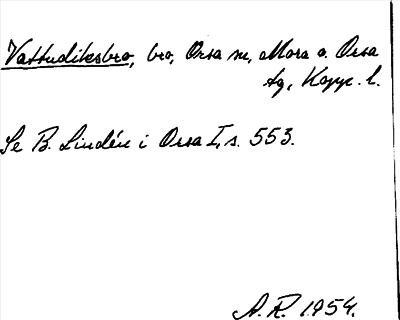 Vattudiksbro, bro, Orsa sn, Mora o. Orsa
tg, Kopp. l.
Se B. Lindén i Orsa I, s. 553.
A. R. 1954.